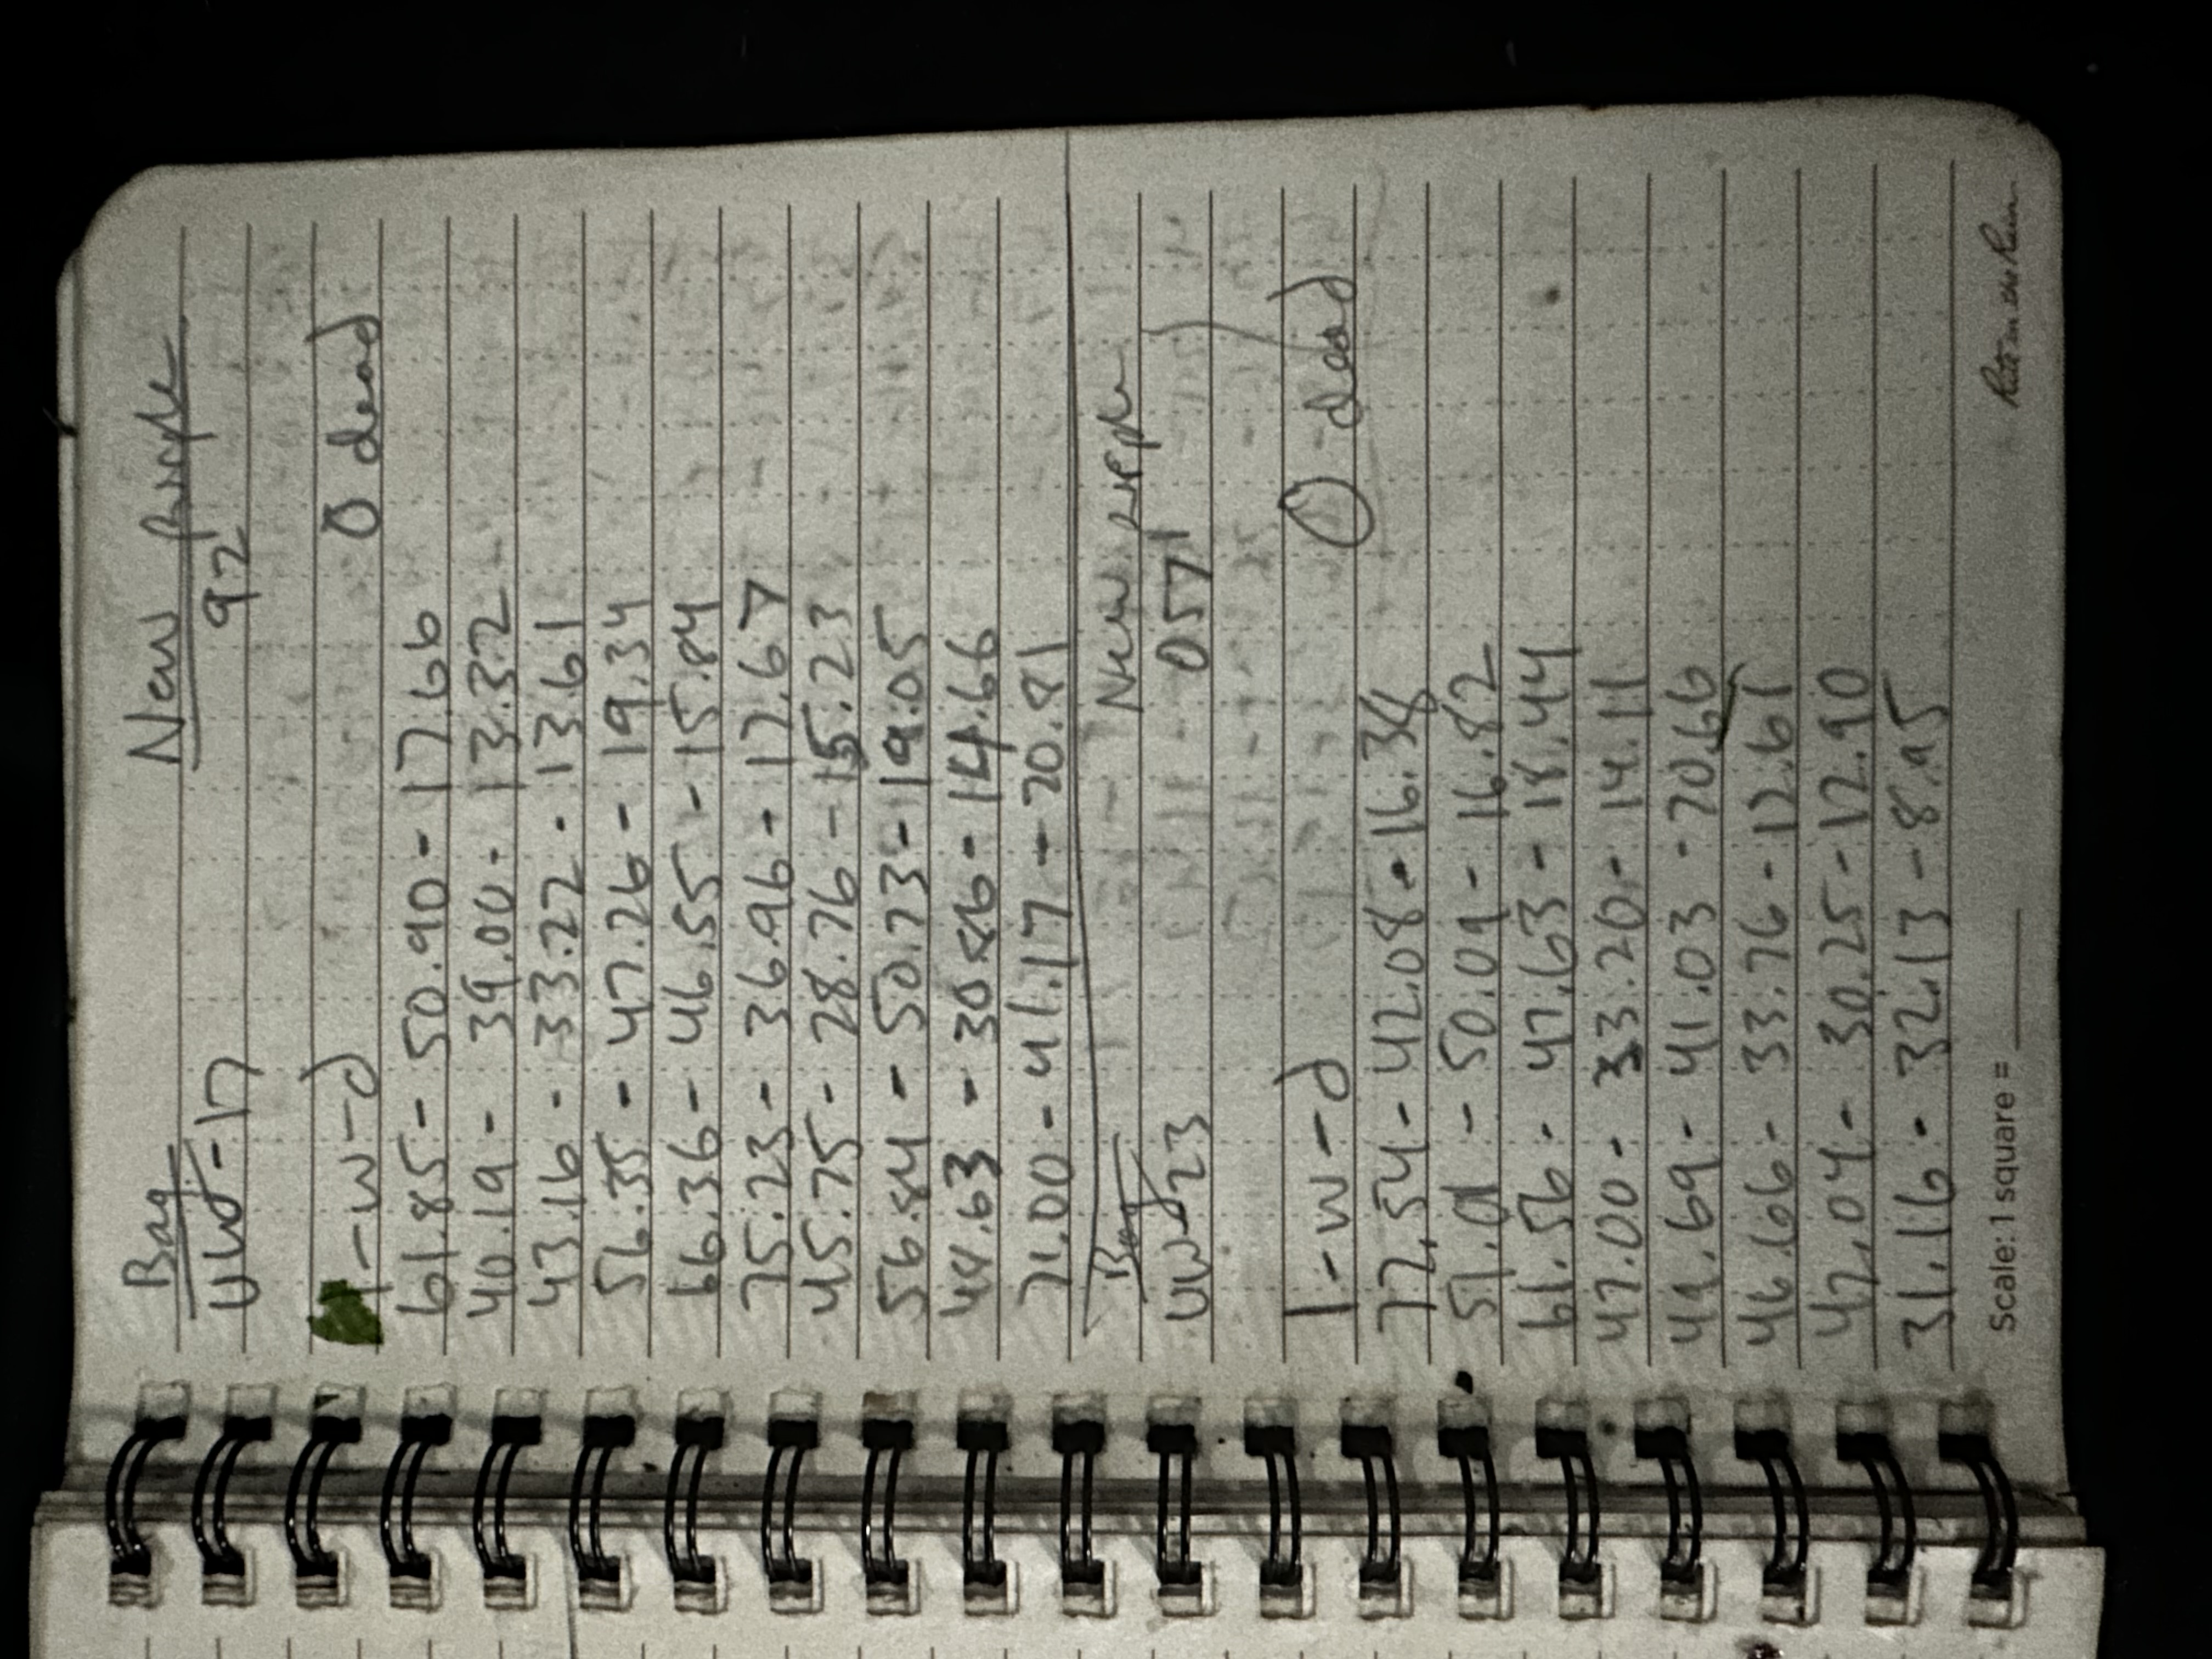 Bag New purple
UW-17 92
l-w-d 0 dead
61.85 - 50.90 - 17.66
40.19 - 39.00 - 13.32
43.16 - 33.22 - 13.61
56.35 - 47.26 - 19.34
66.36 - 46.55 - 15.84
75.23 - 36.96 - 17.67
45.75 - 28.76 - 15.23
56.84 - 50.73 - 19.05
48.63 - 30.86 - 14.66
71.00 - 41.17 - 20.81
Bag New purple
UW-23 057
l-w-d 0 dead
72.54 - 42.08 - 16.38
51.01 - 50.09 - 16.82
61.56 - 47.63 - 18.44
47.00 - 33.20 - 14.11
49.69 - 41.03 - 20.66
46.66 - 33.76 - 12.61
42.04 - 30.25 - 12.90
31.16 - 32.13 - 8.95
Scale: 1 square = ______ Rite in the Rain